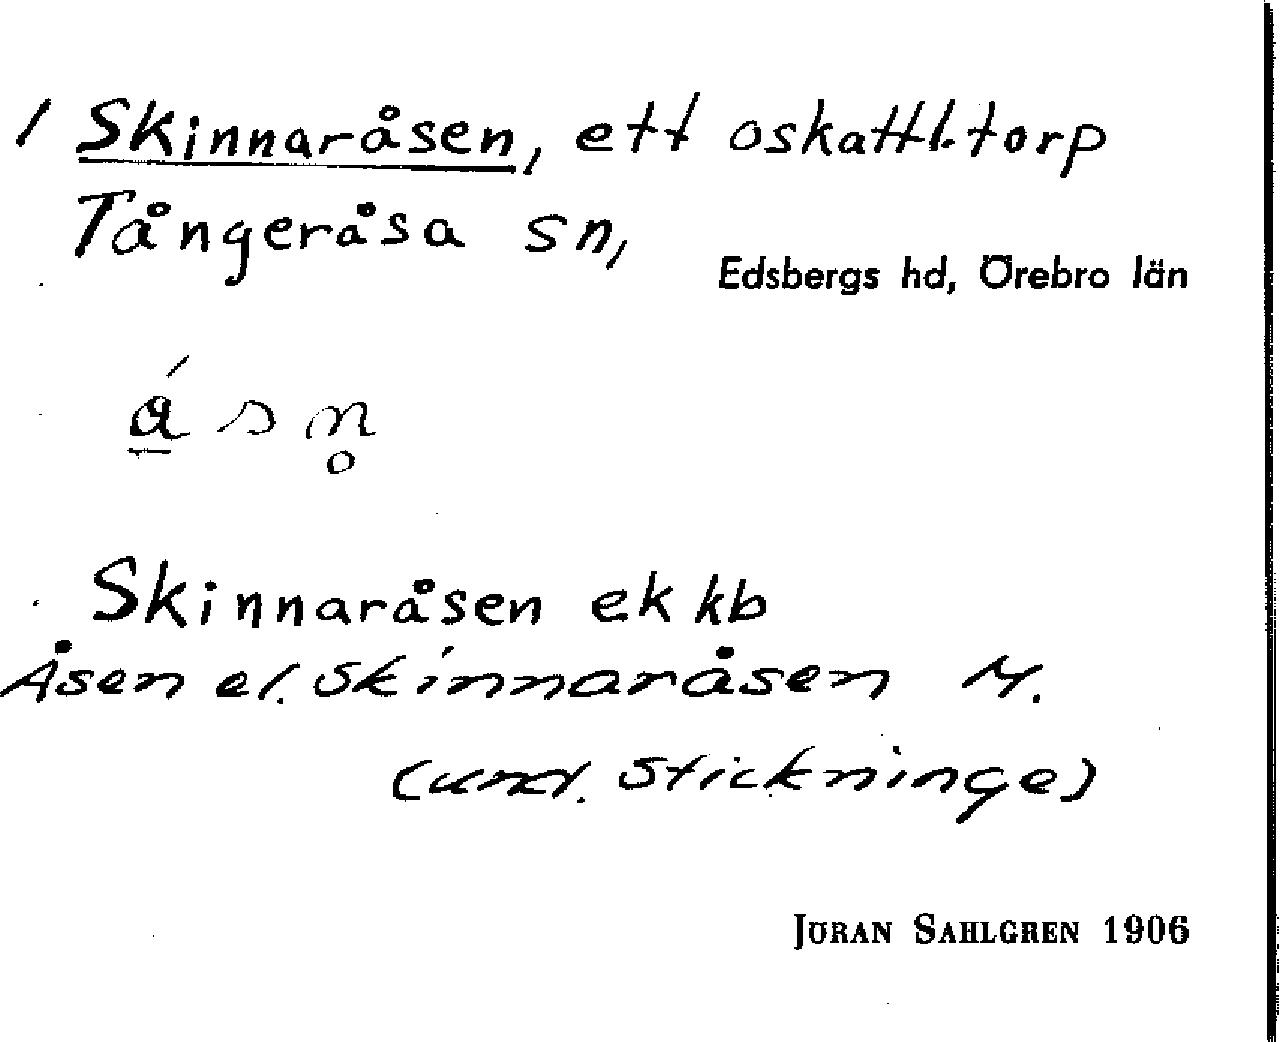 / Skinnaråsen, ett oskattl. torp
Tångeråsa sn,
Edsbergs hd, Örebro län
ásn̥
Skinnaråsen ek kb
Åsen el. Skinnaråsen H.
(und. Stickninge)
JÖRAN SAHLGREN 1906